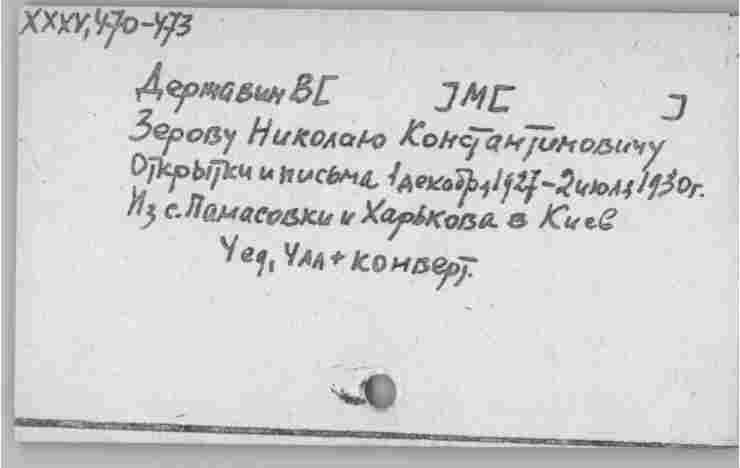 XXXV, 470-473
Державин В[ ]М[ ]
Зерову Николаю Константиновичу
Открытки и письма 1 декабря 1927 - 2 июля 1930г.
Из с. Памасовки и Харькова в Киев
4 ед, 4 лл + конверт.